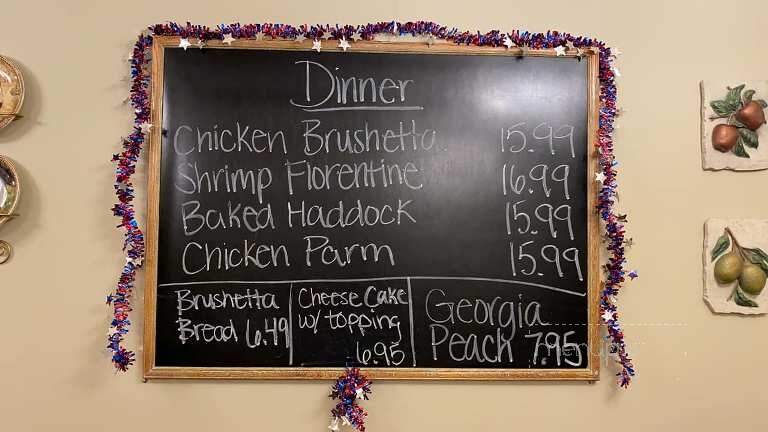 Dinner
Chicken Brushetta 15.99
Shrimp Florentine 16.99
Baked Haddock 15.99
Chicken Parm 15.99
Brushetta
Bread 6.49
Cheese Cake
w/ topping
6.95
Georgia
Peach 7.95